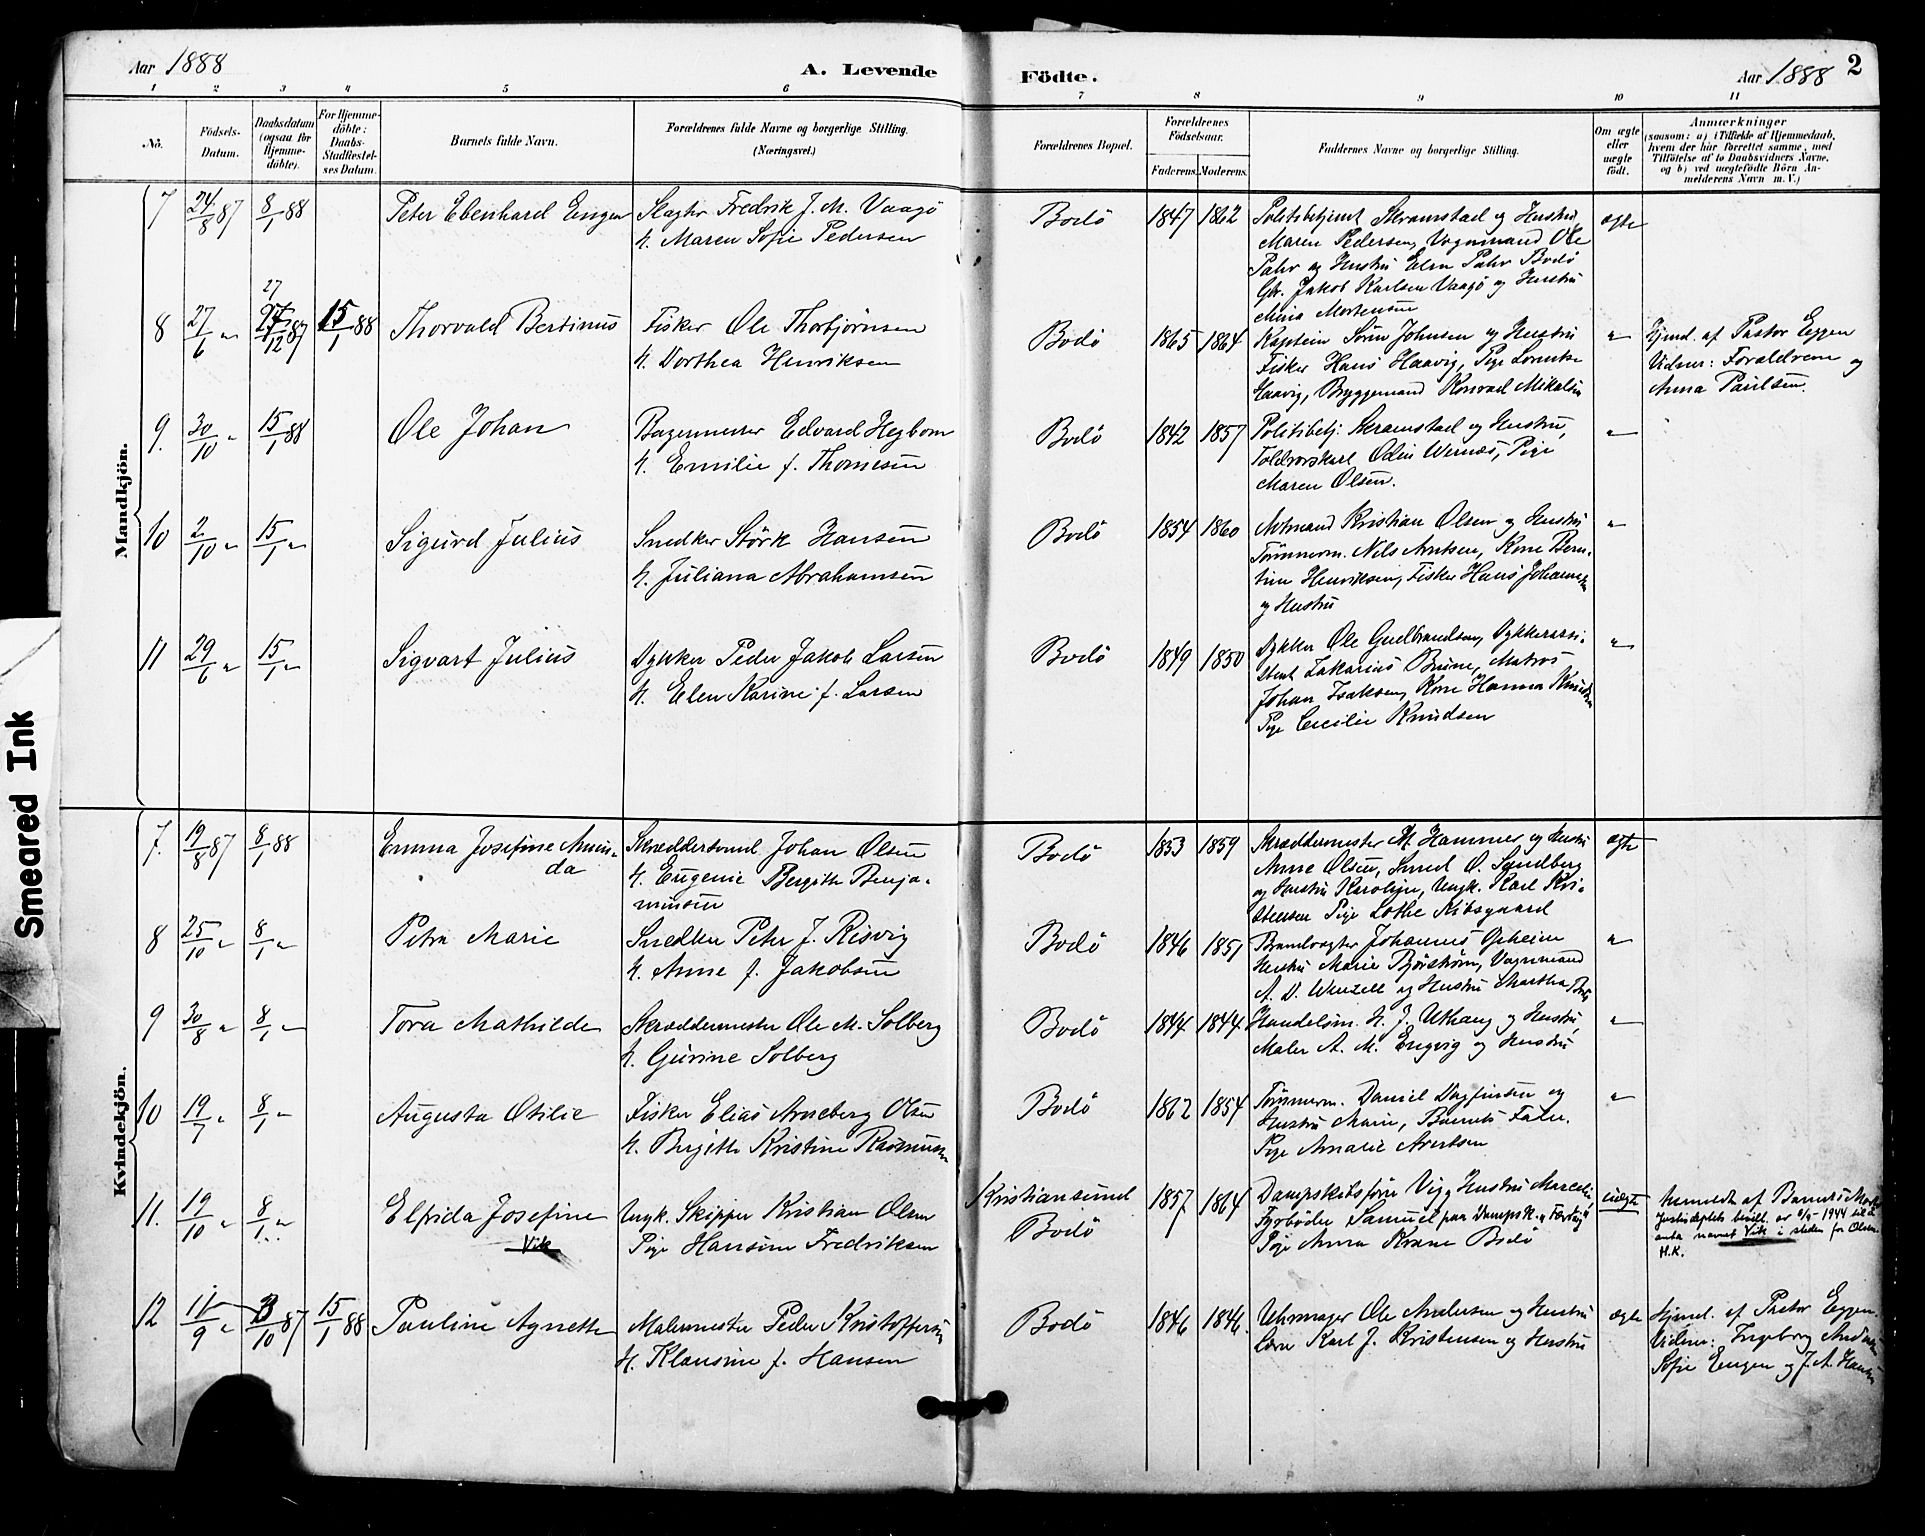 Aar 1888
A. Levende
Födte.
Aar 1888
2
1 2 3 4 5 6 7 8 9 10 11
No.
Födsels-
Datum.
Daabsdatum
(ogsaa for
Hjemme-
döbte).
For Hjemme-
döbte:
Daabs-
Stadfestel-
ses Datum.
Barnets fulde Navn.
Forældrenes fulde Navne og borgerlige Stilling.
(Næringsvei.)
Forældrenes Bopæl.
Forældrenes
Födselsaar.
Faderens. Moderens.
Faddernes Navne og borgerlige Stilling.
Om ægte
eller
uægte
födt.
Anmærkninger
(saasom: a) i Tilfælde af Hjemmedaab,
hvem der har forrettet samme, med
Tilföielse af to Daabsvidners Navne,
og b) ved uægtefödte Börn An-
melderens Navn m. V.)
Mandkjön.
7 24/8 87 8/1 88 Peter Ebenhard Engen
Slagter Fredrik J. M. Vaagö
H. Maren Sofie Pedersen
Bodö 1847 1862
Politibetjent Skramstad og Hustru
Maren Pedersen, Vognmand Ole
Palur og Hustru Elen Palur Bodö
Gbr. Jakob Karlsen Vaagö og Hustru
Mina Mortensen
ægte
8 27/6 " 27 27/12 87 15/1 88 Thorvald Bertinus
Fisker Ole Thorbjørnsen
H. Dorthea Henriksen
Bodö 1865 1864
Kaptein Sörin Johnsen og Hustru
Fisker Hans Haavig, Pige Lorntse
Haavig, Bryggemand Konrad Mikalsen
"
Hjmd. af Pastor Eggen
Vidner: Forældrene og
Anna Paulsen.
9. 30/10 " 15/1 88 Ole Johan
Bagermester Edvard Hegbom
H. Emilie f. Thomesen
Bodö 1842 1857
Politibetj. Skramstad og Hustru,
Toldrorskarl Odin Wernæs, Pige
Maren Olsen.
"
10 2/10 " 15/1 " Sigurd Julius
Snedker Störk Hansen
H. Juliana Abrahamsen
Bodö 1854 1860
Kristian Olsen og Hustru
Tømmerm. Nils Arntsen, Kone Bern-
tine Henriksen, Fisker Hans Johannesen
og Hustru
"
11 29/6 " 15/1 " Sigvart Julius
Dykker Peder Jakob Larsen
H. Elen Karine f. Larsen
Bodö 1849 1850
Dykker Ole Gulbrandsen, Dykkerassi-
stent Zakarias Brune, Matros
Johan Isaksen, Kone Hanna Knudsen
Pige Cecilie Knudsen
"
Kvindekjön.
7. 19/8 87 8/1 88 Emma Josefine Amin-
da
Skræddersvend Johan Olsen
H. Eugenie Bergithe Benja-
minsen
Bodö 1853 1859
Skræddermester M. Hammer og Hustru
Anne Olsen, Smed O. Sandberg
og Hustru Karoline, Ungk. Karl Kri-
stensen Pige Lothe Kibsgaard
ægte
8 25/10 " 8/1 " Petra Marie
Snedker Peter J. Risvig
H. Anne f. Jakobsen
Bodö 1846 1851
Brandvagter Johannes Opheim
Hustru Marie Bjørstrøm, Vognmand
A. D. Wenzell og Hustru Martha
"
9 30/8 " 8/1 " Tora Mathilde
Skræddermester Ole M. Solberg
H. Gurine Solberg
Bodö 1844 1844
Handelsm. H. J. Uthaug og Hustru,
Maler A. M. Engvig og Hustru
"
10 19/7 " 8/1 " Augusta Otilie
Fisker Elias Arneberg Olsen
H. Birgithe Kristine Rasmussen
Bodö 1862 1854
Tømmerm. Daniel Dagfinsen og
Hustru Marie, Barnets Fader.
Pige Amalie Arntsen
"
11. 19/10 " 8/1 " Elfrida Josefine
Vik
Ungk. Skipper Kristian Olsen
Pige Hansine Fredriksen
Kristiansund
Bodö
1857 1864
Dampskibsförer Vig og Hustru Marcelie,
Fyrbøder Samuel paa Dampsk. "Færder"
Pige Anna Krane Bodö
uægte
Anmeldt af Barnets Moder
Justisdeptets bevill. av 6/5 - 1944 til å
anta navnet Vik i steden for Olsen.
H.K.
12 11/9 " 3/10 87 15/1 88 Pauline Agnette
Malermester Peder Kristoffersen
H. Klausine f. Hansen
Bodö 1846 1846.
Uhrmager Ole Andersen og Hustru
Lærer Karl J. Kristensen og Hustru
ægte
Hjmd. af Pastor Eggen.
Vidner: Ingeborg Andersen
Sofie Engen og J. A. Hansen
Smeared Ink